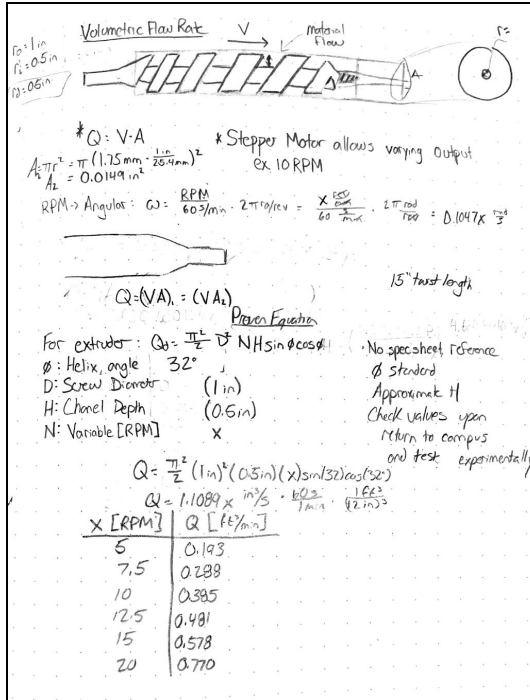 Volumetric Flow Rate
V
Material
Flow
r=
r₀=1in
rᵢ=0.5in
r₂=.05in
A
*Q: V·A
* Stepper Motor allows varying output
ex. 10 RPM
A₂=πr² = π(1.75mm · 1in/25.4mm)²
A₂ = 0.0149in²
RPM→Angular: ω= RPM/60 s/min · 2π rad/rev = X rev/min / 60 s/min · 2π rad/rev = 0.1047x rad/s
15" twist length
Q=(VA)₁ = (VA₂)
Proven Equation
For extruder: Qd = π²/2 D² NH sinφcosφ
φ: Helix angle 32°
D: Screw Diameter (1in)
H: Chanel Depth (0.5in)
N: Variable [RPM] x
·No specsheet, reference
φ standard
Approximate H
Check values upon
return to campus
and test experimentally
Q= π²/2 (1in)²(0.5in)(x)sin(32)cos(32°)
Q= 1.1089x in³/s · 60s/1min · 1ft³/(12in)³
X [RPM] Q [ft³/min]
5 0.193
7.5 0.288
10 0.385
12.5 0.481
15 0.578
20 0.770